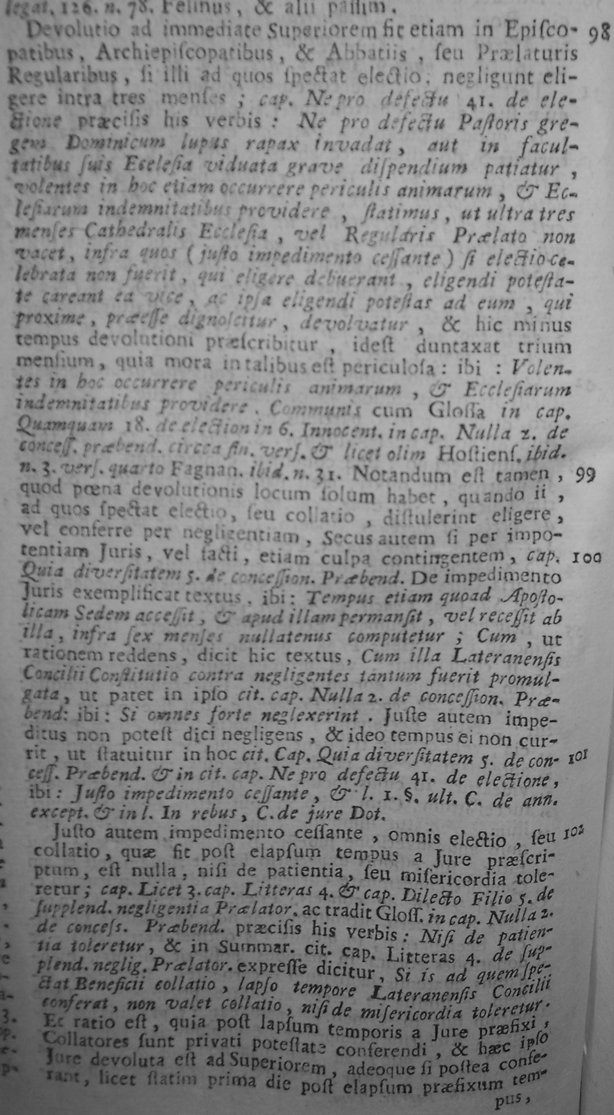 legat. 126. n. 78. Felinus, & alii passim.
Devolutio ad immediate Superiorem fit etiam in Episco- 98
patibus, Archiepiscopatibus, & Abbatiis, seu Prælaturis
Regularibus, si illi ad quos spectat electio, negligunt eli-
gere intra tres menses; cap. Ne pro defectu 41. de ele-
ctione præcisis his verbis: Ne pro defectu Pastoris gre-
gem Dominicum lupus rapax invadat, aut in facul-
tatibus suis Ecclesia viduata grave dispendium patiatur,
volentes in hoc etiam occurrere periculis animarum, & Ec-
lesiarum indemnitatibus providere, statimus, ut ultra tres
menses Cathedralis Ecclesia, vel Regularis Prælato non
vacet, infra quos (justo impedimento cessante) si electio ce-
lebrata non fuerit, qui eligere debuerant, eligendi potesta-
te careant ea vice, ac ipsa eligendi potestas ad eum, qui
proxime, præesse dignoscitur, devolvatur, & hic minus
tempus devolutioni præscribitur, idest duntaxat trium
mensium, quia mora in talibus est periculosa: ibi: Volen-
tes in hoc occurrere periculis animarum, & Ecclesiarum
indemnitatibus providere. Communis cum Glossa in cap.
Quamquam 18. de election in 6. Innocent. in cap. Nulla 2. de
concess. præbend. circca fin. vers. & licet olim Hostiens. ibid.
n. 3. vers. quarto Fagnan. ibid. n. 31. Notandum est tamen, 99
quod pœna devolutionis locum solum habet, quando ii,
ad quos spectat electio, seu collatio, distulerint eligere,
vel conferre per negligentiam, Secus autem si per impo-
tentiam Juris, vel facti, etiam culpa contingentem, cap. 100
Quia diversitatem 5. de concession. Præbend. De impedimento
Juris exemplificat textus, ibi: Tempus etiam quoad Aposto-
licam Sedem accessit, & apud illam permansit, vel recessit ab
illa, infra sex menses nullatenus computetur; Cum, ut
rationem reddens, dicit hic textus, Cum illa Lateranensis
Concilii Constitutio contra negligentes tantum fuerit promul-
gata, ut patet in ipso cit. cap. Nulla 2. de concession. Præ-
bend: ibi: Si omnes forte neglexerint. Juste autem impe-
ditus non potest dici negligens, & ideo tempus ei non cur-
rit, ut statuitur in hoc cit. Cap. Quia diversitatem 5. de con- 101
cess. Præbend. & in cit. cap. Ne pro defectu 41. de electione,
ibi: Justo impedimento cessante, & l. 1. §. ult. C. de ann.
except. & in l. In rebus, C. de jure Dot.
Justo autem impedimento cessante, omnis electio, seu 102
collatio, quæ fit post elapsum tempus a Jure præscri-
ptum, est nulla, nisi de patientia, seu misericordia tole-
retur; cap. Licet 3. cap. Litteras 4. & cap. Dilecto Filio 5. de
supplend. negligentia Prælator. ac tradit Gloss. in cap. Nulla 2.
de concess. Præbend. præcisis his verbis: Nisi de patien-
tia toleretur, & in Summar. cit. cap. Litteras 4. de sup-
plend. neglig. Prælator. expresse dicitur, Si is ad quem spe-
ctat Beneficii collatio, lapso tempore Lateranensis Concilii
conferat, non valet collatio, nisi de misericordia toleretur.
Et ratio est, quia post lapsum temporis a Jure præfixi,
Collatores sunt privati potestate conferendi, & hæc ipso
Jure devoluta est ad Superiorem, adeoque si postea confe-
rant, licet statim prima die post elapsum præfixum tem-
pus,